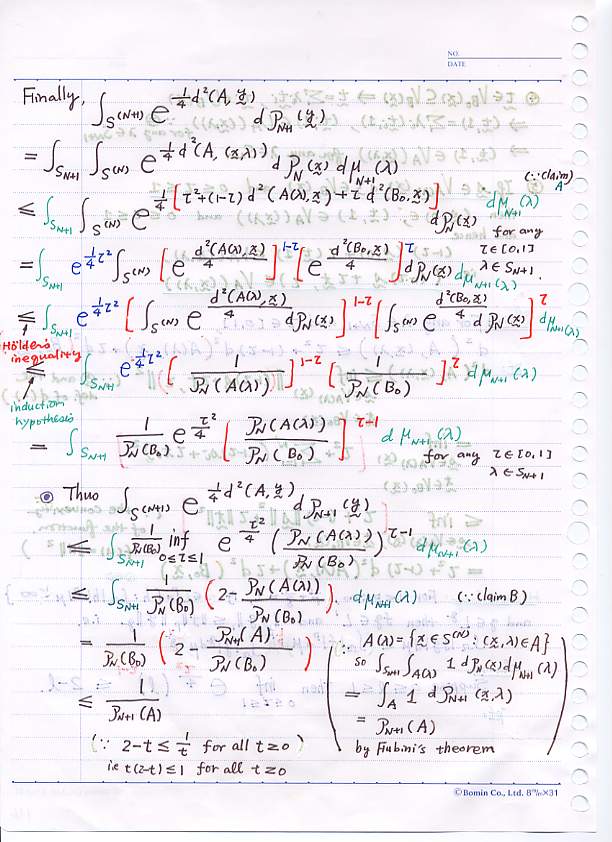 NO.
DATE
Finally, ∫_{S^{(N+1)}} e^{¼ d²(A, y)} dP_{N+1}(y)
= ∫_{S_{N+1}} ∫_{S^{(N)}} e^{¼ d²(A, (x,λ))} dP_N(x) dμ_{N+1}(λ)
(∵ claim A)
≤ ∫_{S_{N+1}} ∫_{S^{(N)}} e^{¼[τ²+(1-τ) d²(A(λ),x)+τ d²(B₀,x)]} dP_N(x) dμ_{N+1}(λ)
for any τ∈[0,1] λ∈S_{N+1}.
= ∫_{S_{N+1}} e^{¼τ²} ∫_{S^{(N)}} [e^{d²(A(λ),x)/4}]^{1-τ} [e^{d²(B₀,x)/4}]^{τ} dP_N(x) dμ_{N+1}(λ)
≤ ∫_{S_{N+1}} e^{¼τ²} [∫_{S^{(N)}} e^{d²(A(λ),x)/4} dP_N(x)]^{1-τ} [∫_{S^{(N)}} e^{d²(B₀,x)/4} dP_N(x)]^{τ} dμ_{N+1}(λ)
Hölder's inequality
≤ ∫_{S_{N+1}} e^{¼τ²} [1/P_N(A(λ))]^{1-τ} [1/P_N(B₀)]^{τ} dμ_{N+1}(λ)
induction hypothesis
= ∫_{S_{N+1}} 1/P_N(B₀) e^{τ²/4} [P_N(A(λ))/P_N(B₀)]^{τ-1} dμ_{N+1}(λ)
for any τ∈[0,1] λ∈S_{N+1}
◉ Thus ∫_{S^{(N+1)}} e^{¼ d²(A,y)} dP_{N+1}(y)
≤ ∫_{S_{N+1}} 1/P_N(B₀) inf_{0≤τ≤1} e^{τ²/4} (P_N(A(λ))/P_N(B₀))^{τ-1} dμ_{N+1}(λ)
≤ ∫_{S_{N+1}} 1/P_N(B₀) (2- P_N(A(λ))/P_N(B₀)) dμ_{N+1}(λ) (∵ claim B)
= 1/P_N(B₀) (2- P_{N+1}(A)/P_N(B₀))
≤ 1/P_{N+1}(A)
(∵ 2-t ≤ 1/t for all t≥0)
ie t(2-t)≤1 for all t≥0
(∵ A(λ)={x∈S^{(N)}: (x,λ)∈A}
so ∫_{S_{N+1}} ∫_{A(λ)} 1 dP_N(x) dμ_{N+1}(λ)
= ∫_A 1 dP_{N+1}(x,λ)
= P_{N+1}(A)
by Fubini's theorem)
©Bomin Co., Ltd. 8m/m×31